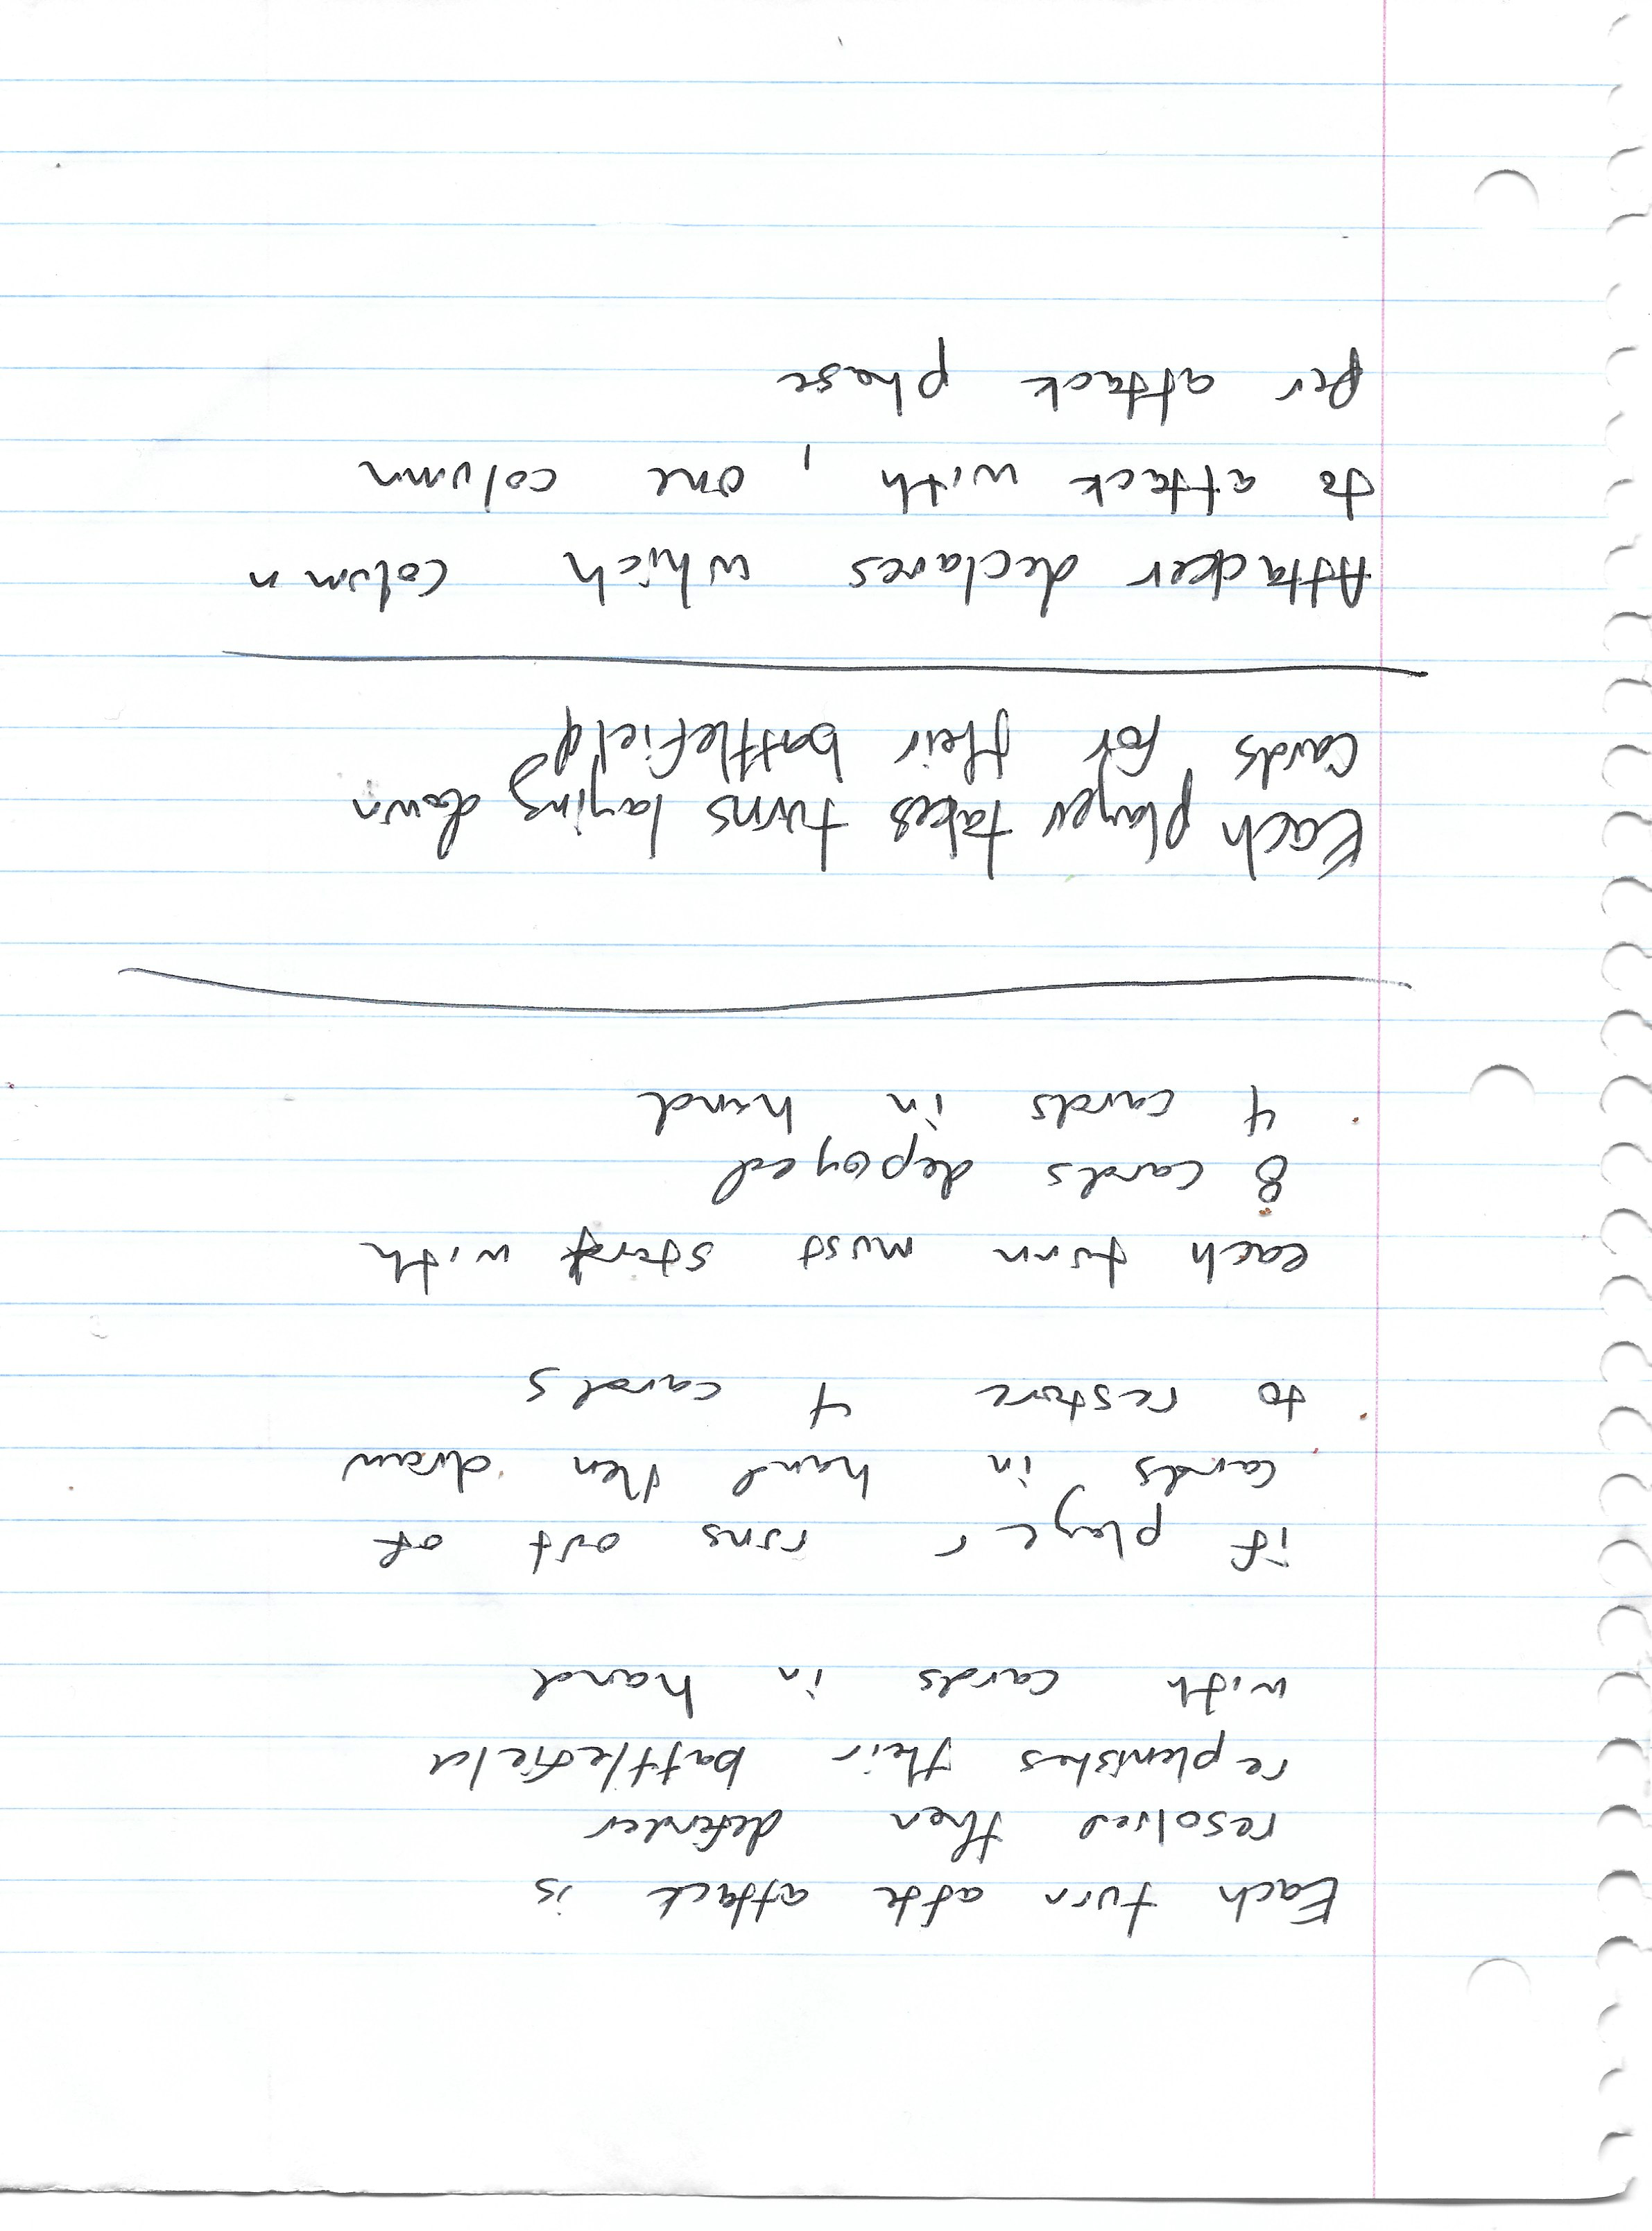 Each turn afte attack is
resolved then defender
replenishes their battlefield
with cards in hand
if player runs out of
cards in hand then draw
to restore 4 cards
each turn must start with
8 cards deployed
4 cards in hand
Each player takes turns laying down
cards for their battlefield?
Attacker declares which column
to attack with, one column
per attack phase